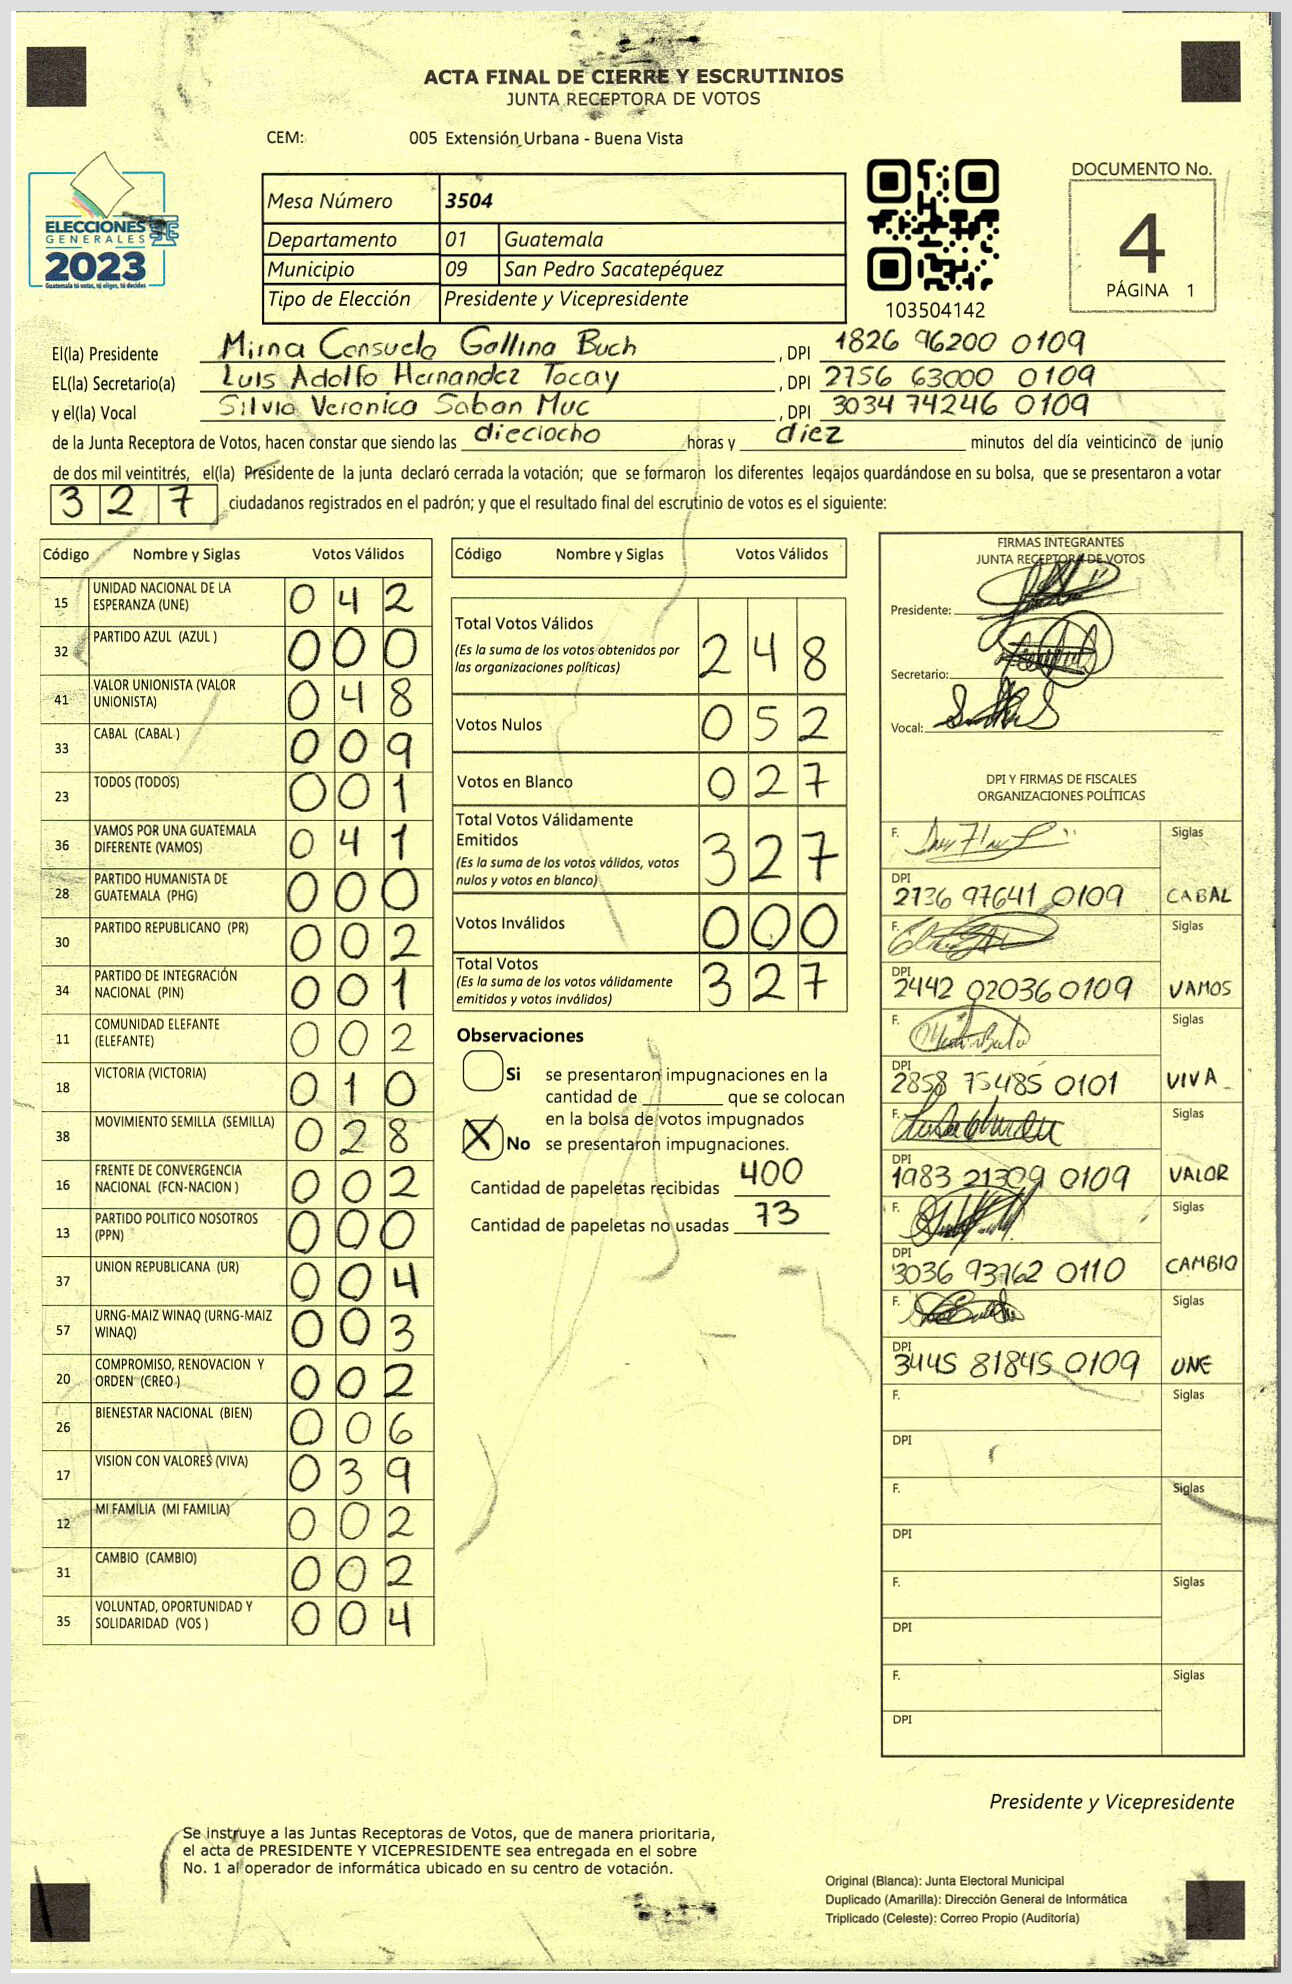 ACTA FINAL DE CIERRE Y ESCRUTINIOS
JUNTA RECEPTORA DE VOTOS
CEM: 005 Extensión Urbana - Buena Vista
ELECCIONES
GENERALES
2023
Guatemala tú votas, tú eliges, tú decides
Mesa Número 3504
Departamento 01 Guatemala
Municipio 09 San Pedro Sacatepéquez
Tipo de Elección Presidente y Vicepresidente
103504142
DOCUMENTO No.
4
PÁGINA 1
El(la) Presidente Mirna Consuelo Gallina Buch , DPI 1826 96200 0109
EL(la) Secretario(a) Luis Adolfo Hernandez Tocay , DPI 2756 63000 0109
y el(la) Vocal Silvia Veronica Saban Muc , DPI 3034 74246 0109
de la Junta Receptora de Votos, hacen constar que siendo las dieciocho horas y diez minutos del día veinticinco de junio
de dos mil veintitrés, el(la) Presidente de la junta declaró cerrada la votación; que se formaron los diferentes legajos guardándose en su bolsa, que se presentaron a votar
327 ciudadanos registrados en el padrón; y que el resultado final del escrutinio de votos es el siguiente:
Código Nombre y Siglas Votos Válidos
15 UNIDAD NACIONAL DE LA ESPERANZA (UNE) 042
32 PARTIDO AZUL (AZUL ) 000
41 VALOR UNIONISTA (VALOR UNIONISTA) 048
33 CABAL (CABAL ) 009
23 TODOS (TODOS) 001
36 VAMOS POR UNA GUATEMALA DIFERENTE (VAMOS) 041
28 PARTIDO HUMANISTA DE GUATEMALA (PHG) 000
30 PARTIDO REPUBLICANO (PR) 002
34 PARTIDO DE INTEGRACIÓN NACIONAL (PIN) 001
11 COMUNIDAD ELEFANTE (ELEFANTE) 002
18 VICTORIA (VICTORIA) 010
38 MOVIMIENTO SEMILLA (SEMILLA) 028
16 FRENTE DE CONVERGENCIA NACIONAL (FCN-NACION ) 002
13 PARTIDO POLITICO NOSOTROS (PPN) 000
37 UNION REPUBLICANA (UR) 004
57 URNG-MAIZ WINAQ (URNG-MAIZ WINAQ) 003
20 COMPROMISO, RENOVACION Y ORDEN (CREO ) 002
26 BIENESTAR NACIONAL (BIEN) 006
17 VISION CON VALORES (VIVA) 039
12 MI FAMILIA (MI FAMILIA) 002
31 CAMBIO (CAMBIO) 002
35 VOLUNTAD, OPORTUNIDAD Y SOLIDARIDAD (VOS ) 004
Código Nombre y Siglas Votos Válidos
Total Votos Válidos 248
(Es la suma de los votos obtenidos por
las organizaciones políticas)
Votos Nulos 052
Votos en Blanco 027
Total Votos Válidamente
Emitidos 327
(Es la suma de los votos válidos, votos
nulos y votos en blanco)
Votos Inválidos 000
Total Votos 327
(Es la suma de los votos válidamente
emitidos y votos inválidos)
Observaciones
Si se presentaron impugnaciones en la
cantidad de ________ que se colocan
en la bolsa de votos impugnados
X No se presentaron impugnaciones.
Cantidad de papeletas recibidas 400
Cantidad de papeletas no usadas 73
FIRMAS INTEGRANTES
JUNTA RECEPTORA DE VOTOS
Presidente:
Secretario:
Vocal:
DPI Y FIRMAS DE FISCALES
ORGANIZACIONES POLÍTICAS
F. Siglas
DPI 2736 97641 0109 CABAL
F. Siglas
DPI 2442 02036 0109 VAMOS
F. Siglas
DPI 2858 75485 0101 VIVA
F. Siglas
DPI 1983 21309 0109 VALOR
F. Siglas
DPI 3036 93762 0110 CAMBIO
F. Siglas
DPI 3445 81845 0109 UNE
F. Siglas
DPI
F. Siglas
DPI
F. Siglas
DPI
F. Siglas
DPI
Presidente y Vicepresidente
Se instruye a las Juntas Receptoras de Votos, que de manera prioritaria,
el acta de PRESIDENTE Y VICEPRESIDENTE sea entregada en el sobre
No. 1 al operador de informática ubicado en su centro de votación.
Original (Blanca): Junta Electoral Municipal
Duplicado (Amarilla): Dirección General de Informática
Triplicado (Celeste): Correo Propio (Auditoría)